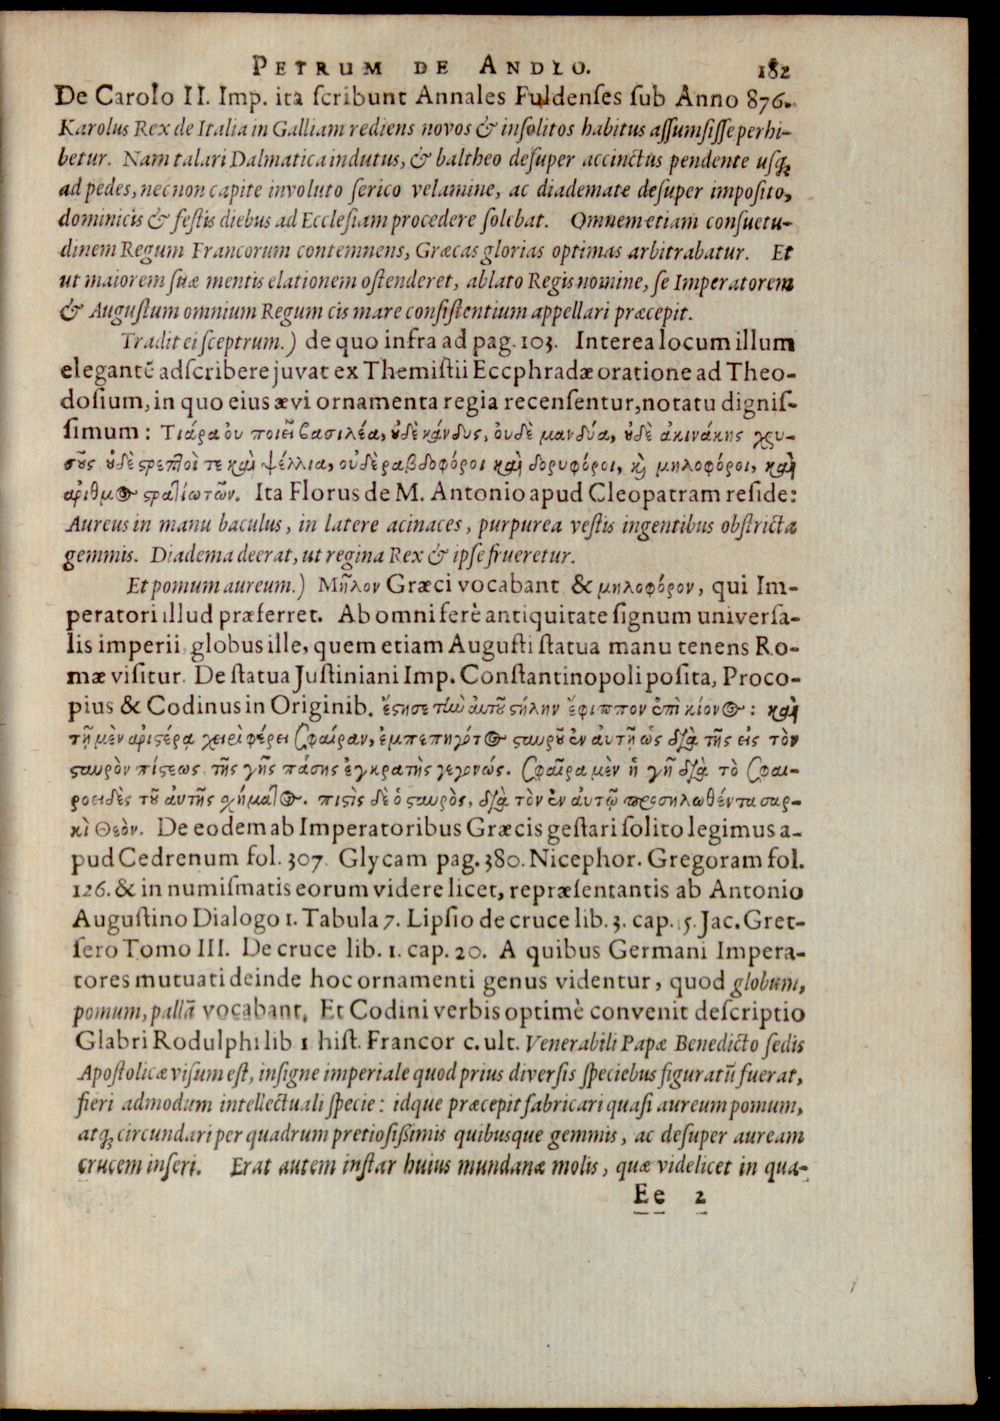 PETRUM DE ANDLO. 182
De Carolo II. Imp. ita ſcribunt Annales Fuldenſes ſub Anno 876.
Karolus Rex de Italia in Galliam rediens novos & inſolitos habitus aſſumſiſſe perhi-
betur. Nam talari Dalmatica indutus, & baltheo deſuper accinctus pendente uſq́;
ad pedes, necnon capite involuto ſerico velamine, ac diademate deſuper impoſito,
dominicis & feſtis diebus ad Eccleſiam procedere ſolebat. Omnem etiam conſuetu-
dinem Regum Francorum contemnens, Græcas glorias optimas arbitrabatur. Et
ut maiorem ſuæ mentis elationem oſtenderet, ablato Regis nomine, ſe Imperatorem
& Auguſtum omnium Regum cis mare conſiſtentium appellari præcepit.
Tradit ei ſceptrum.) de quo infra ad pag. 103. Interea locum illum
elegantẽ adſcribere juvat ex Themiſtii Eccphradæ oratione ad Theo-
doſium, in quo eius ævi ornamenta regia recenſentur, notatu digniſ-
ſimum: Τιάρα οὐ ποιεῖ βασιλέα, ȣ̓δὲ κάνδυς, οὐδὲ μανδύα, ȣ̓δὲ ἀκινάκης χρυ-
σȣ͂ς ȣ̓δὲ ϛρεπλοὶ τε καὶ ψέλλια, οὐδὲ ραβδοφόροι καὶ δορυφόροι, κ̀ μηλοφόροι, καὶ
ἀριθμὸς ϛραλιωτῶν. Ita Florus de M. Antonio apud Cleopatram reſide:
Aureus in manu baculus, in latere acinaces, purpurea veſtis ingentibus obſtricta
gemmis. Diadema deerat, ut regina Rex & ipſe frueretur.
Et pomum aureum.) Μῆλον Græci vocabant & μηλοφόρον, qui Im-
peratori illud præferret. Ab omni ferè antiquitate ſignum univerſa-
lis imperii globus ille, quem etiam Auguſti ſtatua manu tenens Ro-
mæ viſitur. De ſtatua Juſtiniani Imp. Conſtantinopoli poſita, Proco-
pius & Codinus in Originib. ἔϛησε τὴν αὐτȣ͂ ϛήλην ἔφιππον ἐπὶ κίονος: καὶ
τῇ μὲν ἀριϛέρα χειρὶ φέρει σφαίραν, ἐμπεπηγότος ϛαυρȣ͂ ἐν αὐτῇ ὡς διὰ τῆς εἰς τὸν
ϛαυρὸν πίϛεως τῆς γῆς πάσης ἐγκρατὴς γεγονώς. σφαῖρα μὲν ἡ γῆ διὰ τὸ σφαι-
ροειδὲς τȣ͂ αὐτῆς χήμαλος. πίϛις δὲ ὁ ϛαυρὸς, διὰ τὸν ἐν αὐτῷ προσηλωθέντα σαρ-
κὶ Θεὸν. De eodem ab Imperatoribus Græcis geſtari ſolito legimus a-
pud Cedrenum fol. 307. Glycam pag. 380. Nicephor. Gregoram fol.
126. & in numiſmatis eorum videre licet, repræſentantis ab Antonio
Auguſtino Dialogo 1. Tabula 7. Lipſio de cruce lib. 3. cap. 15. Jac. Gret-
ſero Tomo III. De cruce lib. 1. cap. 20. A quibus Germani Impera-
tores mutuati deinde hoc ornamenti genus videntur, quod globum,
pomum, pallã vocabant. Et Codini verbis optimè convenit deſcriptio
Glabri Rodulphi lib 1 hiſt. Francor c. ult. Venerabili Papæ Benedicto ſedis
Apoſtolicæ viſum eſt, inſigne imperiale quod prius diverſis ſpeciebus figuratũ fuerat,
fieri admodum intellectuali ſpecie: idque præcepit fabricari quaſi aureum pomum,
atq́; circundari per quadrum pretioſißimis quibusque gemmis, ac deſuper auream
crucem inſeri. Erat autem inſtar huius mundanæ molis, quæ videlicet in qua-
Ee 2